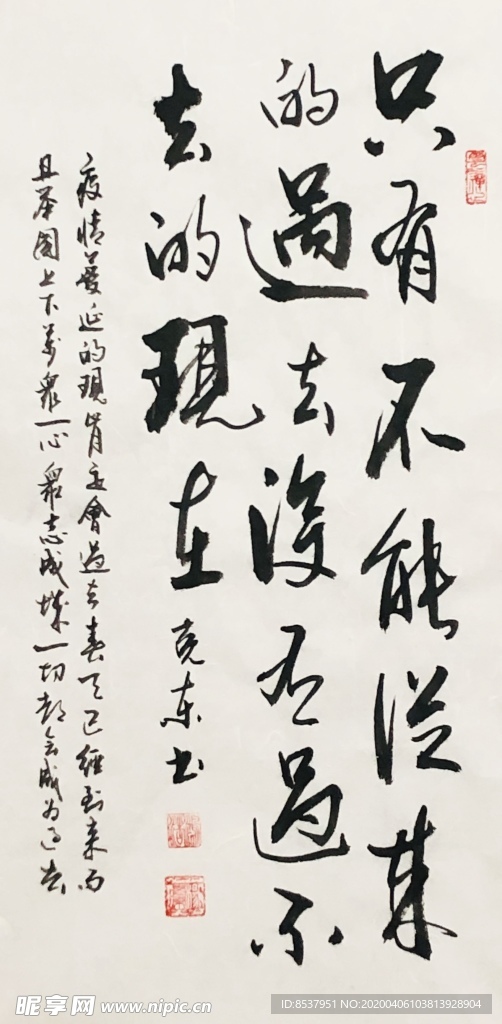 只有不能從來
的過去沒有過不
去的現在 克东书
疫情蔓延的現肯定會過去春天已經到来而
且舉國上下萬眾一心眾志成城一切都会成为过去
昵享网 www.nipic.cn
ID:8537951 NO:20200406103813928904